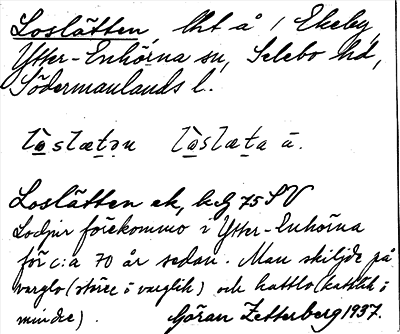 Loslätten, lht å / Ekeby,
Ytter-Enhörna sn, Selebo hd,
Södermanlands l.
lo̱slæt̲ən lòslæt̲a ä.
Loslätten ek, bebyg 75 SV
Lodjur förekommo i Ytter-Enhörna
för c:a 70 år sedan. Man skiljde på
varglo (större i varglik) och kattlo (kattlik;
mindre). Göran Zetterberg 1937.